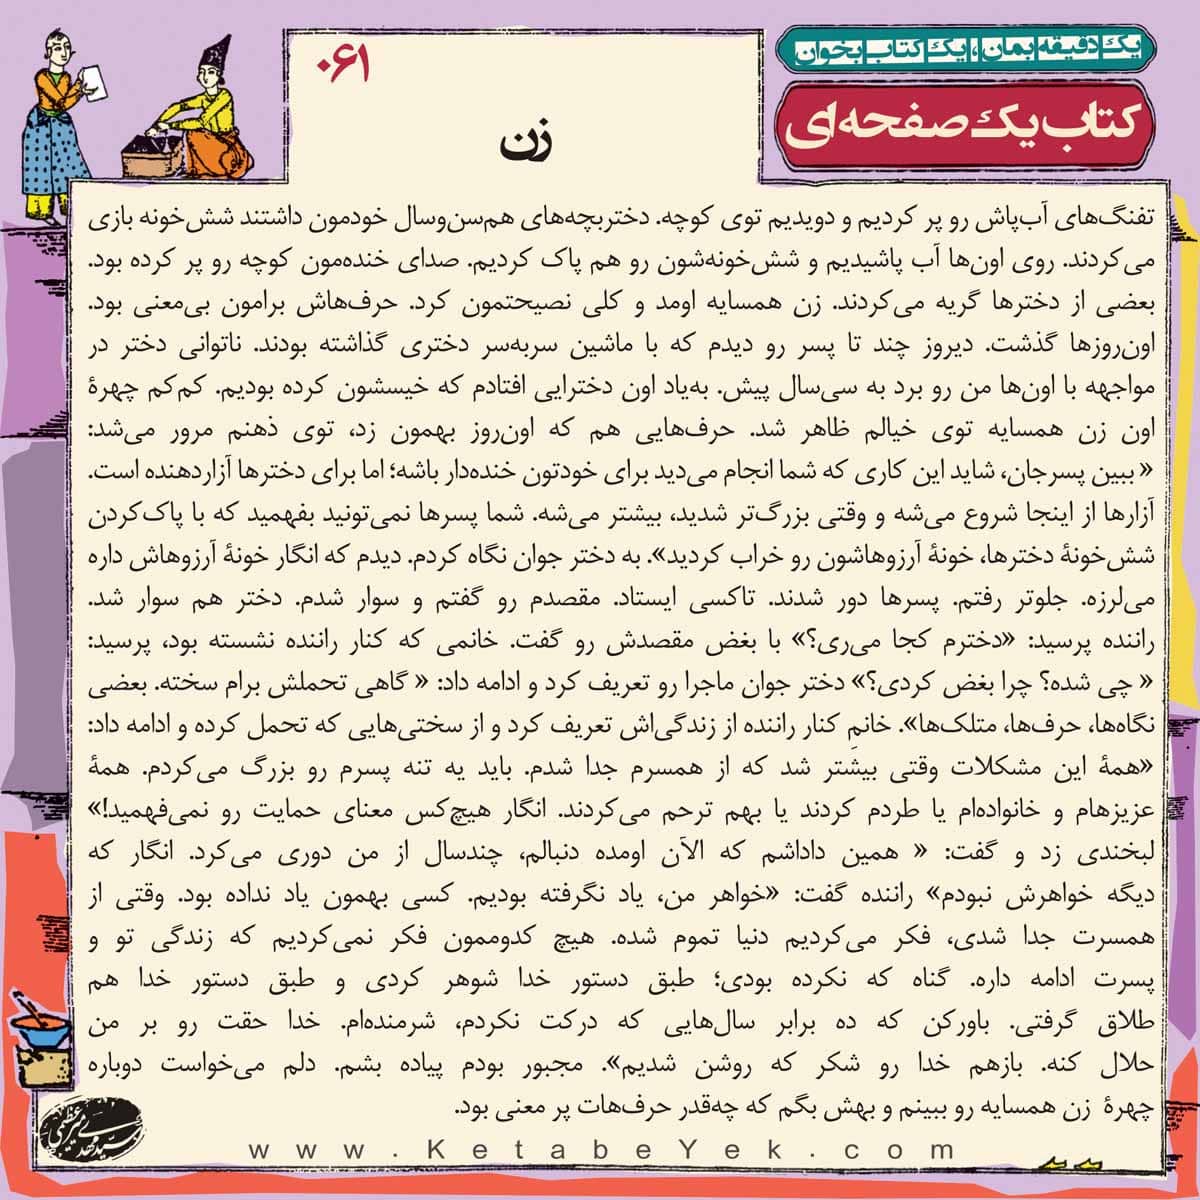 یک دقیقه بمان، یک کتاب بخوان
کتاب یک صفحه‌ای
۰۶۱
زن
تفنگ‌های آب‌پاش رو پر کردیم و دویدیم توی کوچه. دختربچه‌های هم‌سن‌وسال خودمون داشتند شش‌خونه بازی
می‌کردند. روی اون‌ها آب پاشیدیم و شش‌خونه‌شون رو هم پاک کردیم. صدای خنده‌مون کوچه رو پر کرده بود.
بعضی از دخترها گریه می‌کردند. زن همسایه اومد و کلی نصیحتمون کرد. حرف‌هاش برامون بی‌معنی بود.
اون‌روزها گذشت. دیروز چند تا پسر رو دیدم که با ماشین سربه‌سر دختری گذاشته بودند. ناتوانی دختر در
مواجهه با اون‌ها من رو برد به سی‌سال پیش. به‌یاد اون دخترایی افتادم که خیسشون کرده بودیم. کم‌کم چهرهٔ
اون زن همسایه توی خیالم ظاهر شد. حرف‌هایی هم که اون‌روز بهمون زد، توی ذهنم مرور می‌شد:
« ببین پسرجان، شاید این کاری که شما انجام می‌دید برای خودتون خنده‌دار باشه؛ اما برای دخترها آزاردهنده است.
آزارها از اینجا شروع می‌شه و وقتی بزرگ‌تر شدید، بیشتر می‌شه. شما پسرها نمی‌تونید بفهمید که با پاک‌کردن
شش‌خونهٔ دخترها، خونهٔ آرزوهاشون رو خراب کردید». به دختر جوان نگاه کردم. دیدم که انگار خونهٔ آرزوهاش داره
می‌لرزه. جلوتر رفتم. پسرها دور شدند. تاکسی ایستاد. مقصدم رو گفتم و سوار شدم. دختر هم سوار شد.
راننده پرسید: «دخترم کجا می‌ری؟» با بغض مقصدش رو گفت. خانمی که کنار راننده نشسته بود، پرسید:
« چی شده؟ چرا بغض کردی؟» دختر جوان ماجرا رو تعریف کرد و ادامه داد: « گاهی تحملش برام سخته. بعضی
نگاه‌ها، حرف‌ها، متلک‌ها». خانمِ کنار راننده از زندگی‌اش تعریف کرد و از سختی‌هایی که تحمل کرده و ادامه داد:
«همهٔ این مشکلات وقتی بیشتر شد که از همسرم جدا شدم. باید یه تنه پسرم رو بزرگ می‌کردم. همهٔ
عزیزهام و خانواده‌ام یا طردم کردند یا بهم ترحم می‌کردند. انگار هیچ‌کس معنای حمایت رو نمی‌فهمید!»
لبخندی زد و گفت: « همین داداشم که الآن اومده دنبالم، چندسال از من دوری می‌کرد. انگار که
دیگه خواهرش نبودم» راننده گفت: «خواهر من، یاد نگرفته بودیم. کسی بهمون یاد نداده بود. وقتی از
همسرت جدا شدی، فکر می‌کردیم دنیا تموم شده. هیچ کدوممون فکر نمی‌کردیم که زندگی تو و
پسرت ادامه داره. گناه که نکرده بودی؛ طبق دستور خدا شوهر کردی و طبق دستور خدا هم
طلاق گرفتی. باورکن که ده برابر سال‌هایی که درکت نکردم، شرمنده‌ام. خدا حقت رو بر من
حلال کنه. بازهم خدا رو شکر که روشن شدیم». مجبور بودم پیاده بشم. دلم می‌خواست دوباره
چهرهٔ زن همسایه رو ببینم و بهش بگم که چه‌قدر حرف‌هات پر معنی بود.
www.KetabeYek.com